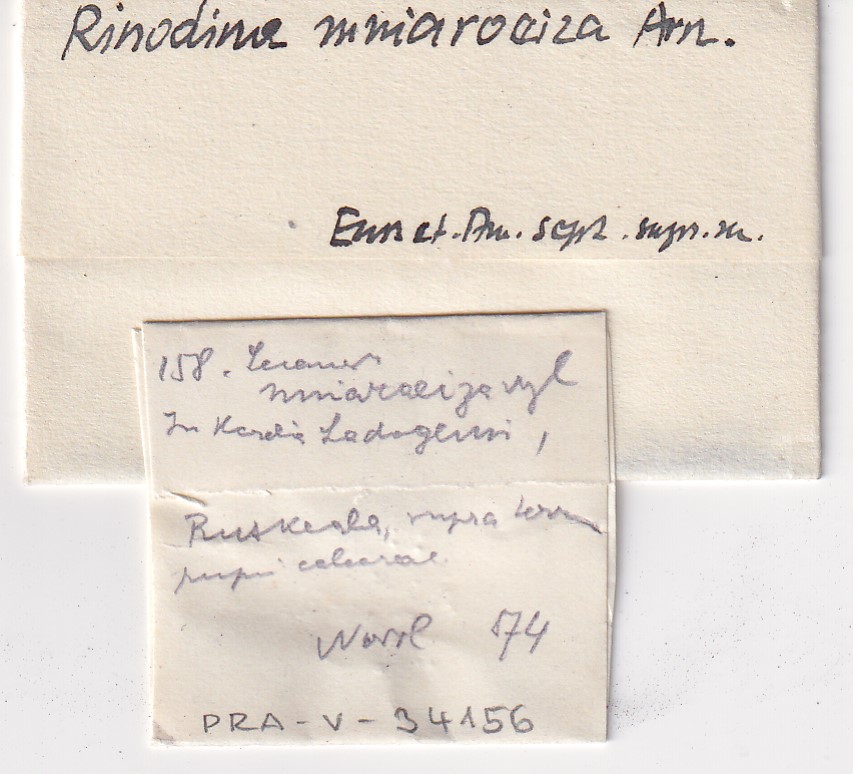 Rinodina mniaroeiza Arn.
Eur. et. Am. sept. supr. m.
158. Lecanora
mniaraeiza nyl
In Karelia Ladogensi,
Ruskeala, supra terra
rupi calcarae
Norrl 74
PRA-V-34156